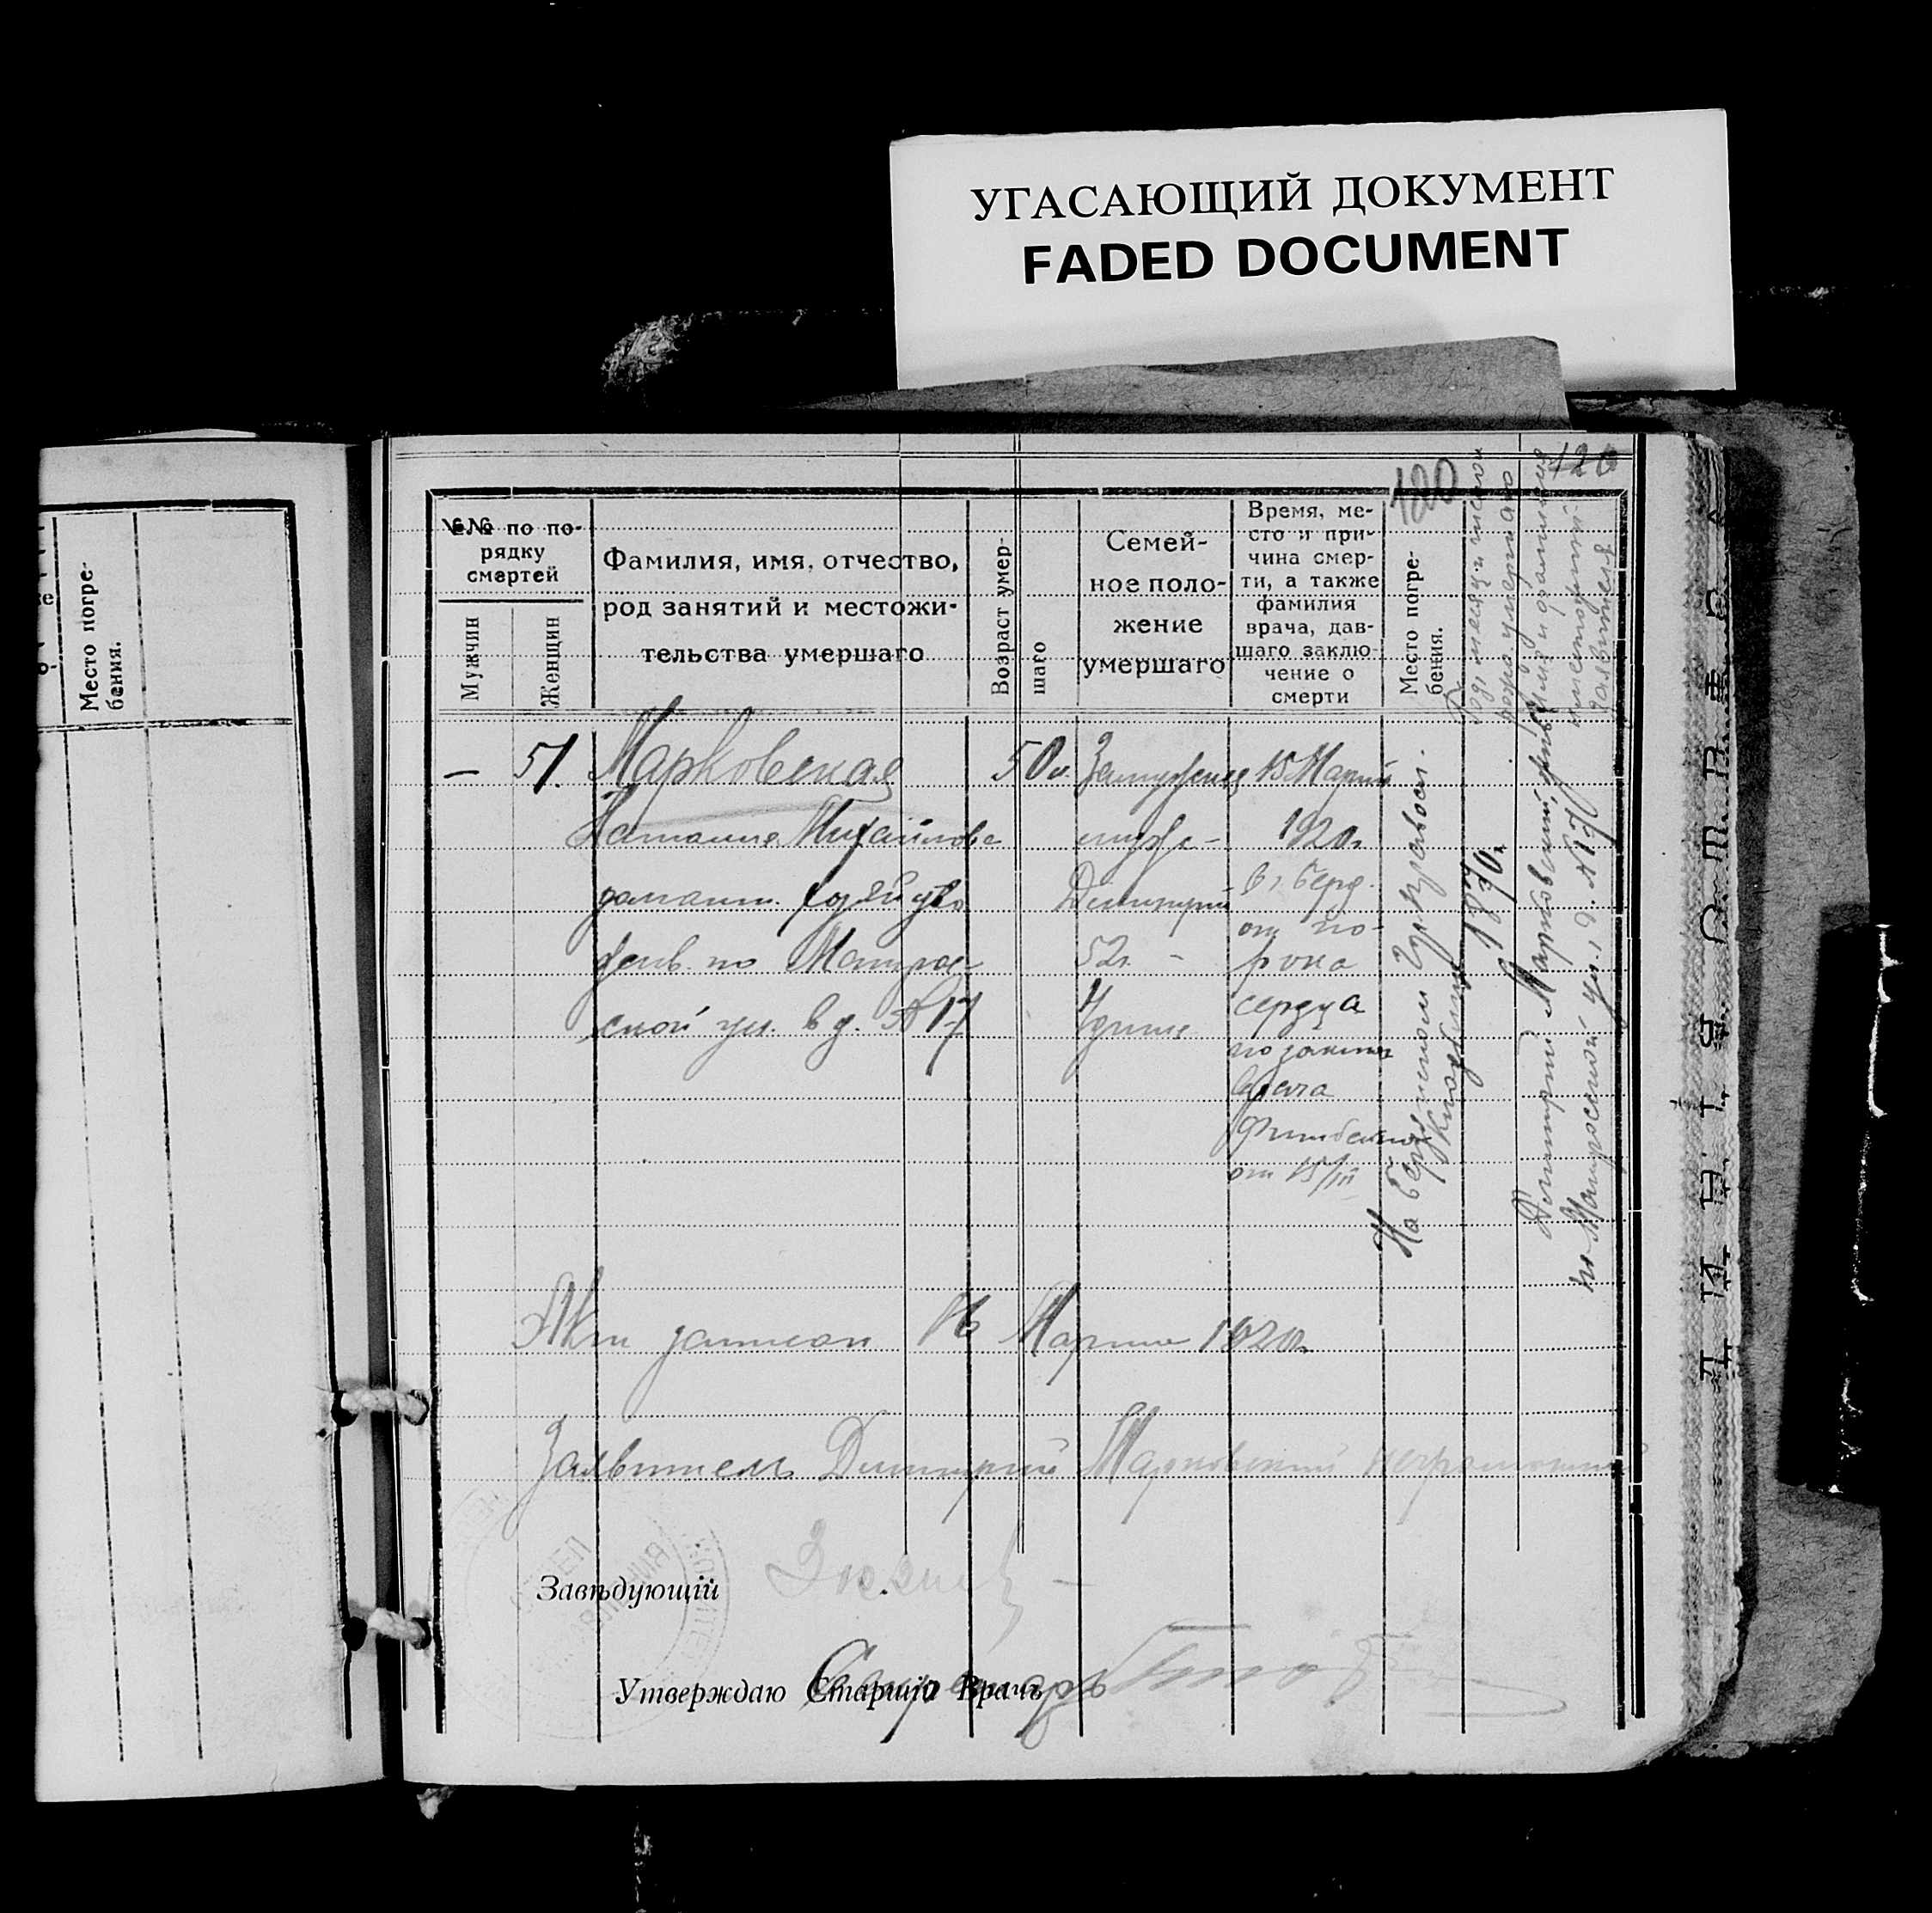 УГАСАЮЩИЙ ДОКУМЕНТ
FADED DOCUMENT
Место погре-
бения.
120
126
№№ по по-
рядку
смертей
Мужчин
Женщин
Фамилия, имя, отчество,
род занятий и местожи-
тельства умершаго
Возраст умер-
шаго
Семей-
ное поло-
жение
умершаго
Время, ме-
сто и при-
чина смер-
ти, а также
фамилия
врача, дав-
шаго заклю-
чение о
смерти
Место погре-
бения.
Год, месяц и число
рожд. умершаго
Имя и фамилия
заявителя
— 51.
Марковская
Наталия Михайлова
домашн. хозяйство
жив. по Матрос-
ской ул. в д. № 17
50 л.
Замужняя
муж -
Димитрий
52 л. -
15 Марта
1920 г.
в г. Берд.
от по-
рока
сердца
по заключ
врача
от 15/III
На Бердянском Гор. правосл.
Кладбище
1870 г.
Димитрий Марковский
по Матросской ул., д. № 17
Акт записан 16 Марта 1920 г.
Заявитель Димитрий Марковский неграмотный
Завѣдующій
Утверждаю Старшій Врачъ